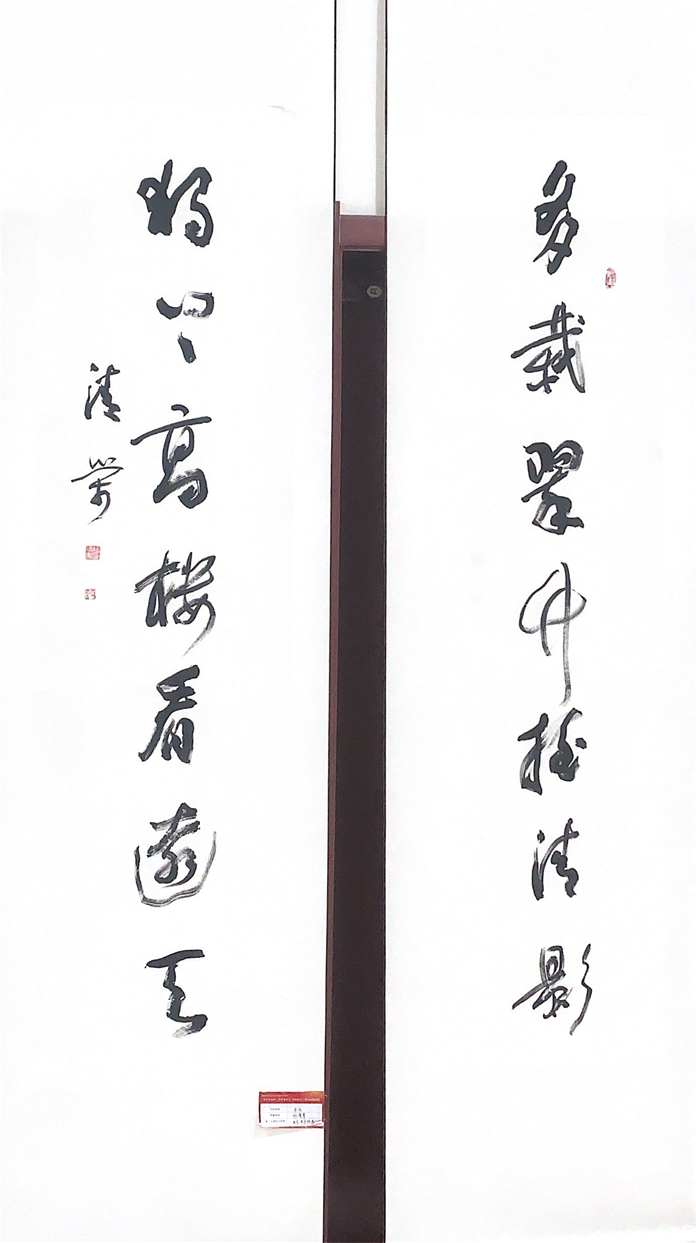 多栽翠竹摇清影
独上高楼看远天
清荣